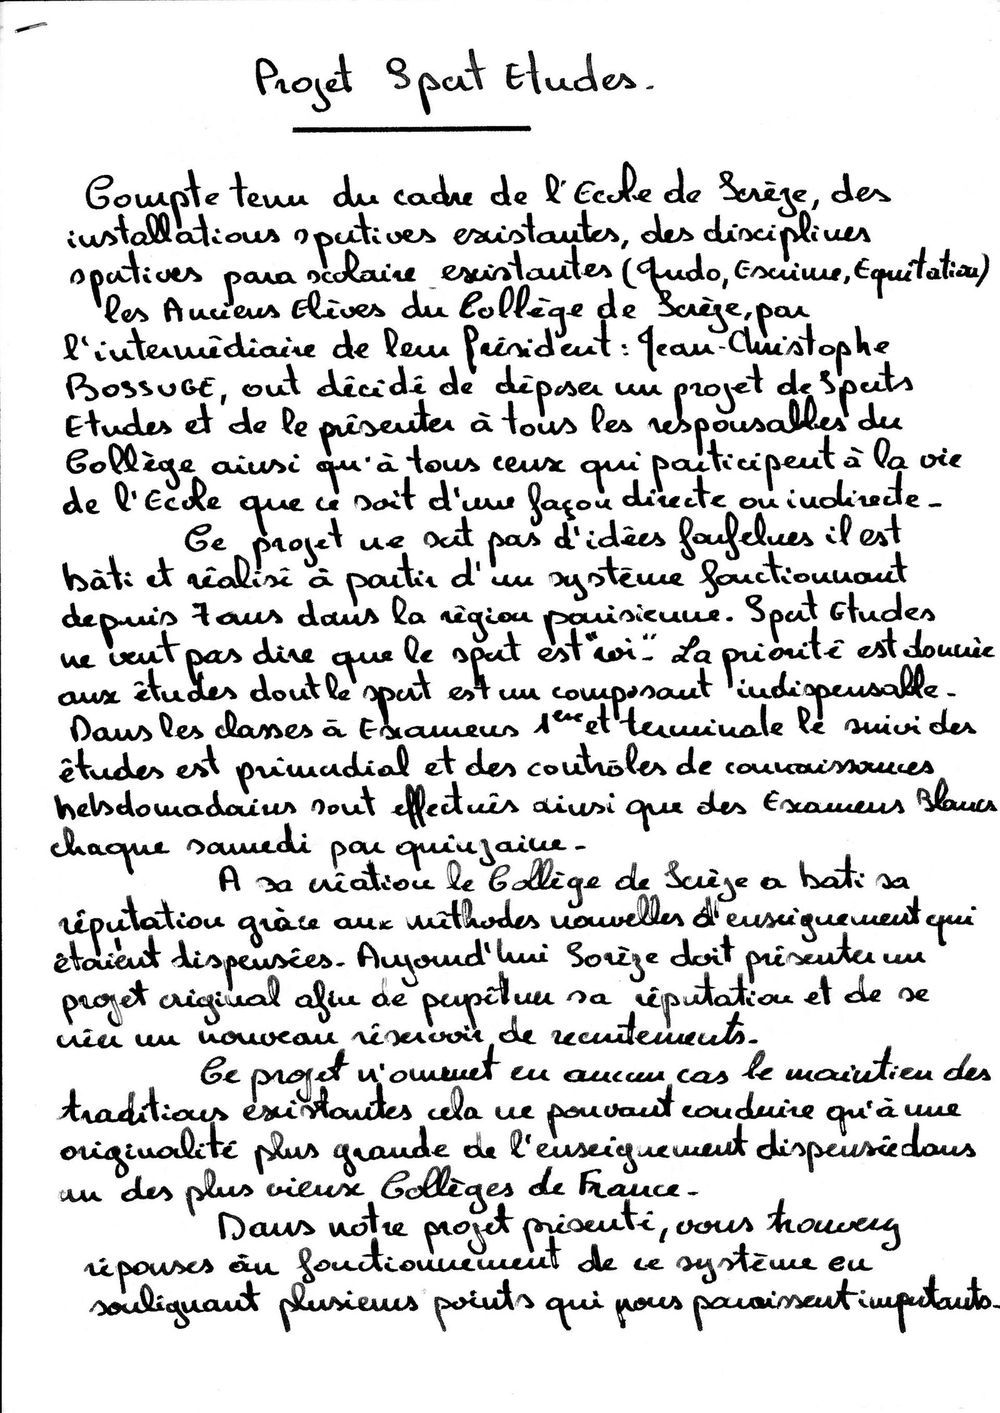 Projet Sport Etudes.
Compte tenu du cadre de l'Ecole de Sorèze, des
installations sportives existantes, des disciplines
sportives para scolaire existantes (Judo, Escrime, Equitation)
les Anciens Elèves du Collège de Sorèze, par
l'intermédiaire de leur Président : Jean-Christophe
BOSSUGE, ont décidé de déposer un projet de Sports
Etudes et de le présenter à tous les responsables du
Collège ainsi qu'à tous ceux qui participent à la vie
de l'Ecole que ce soit d'une façon directe ou indirecte -
Ce projet ne sort pas d'idées farfelues il est
bâti et réalisé à partir d'un système fonctionnant
depuis 7 ans dans la région parisienne. Sport Etudes
ne veut pas dire que le sport est "roi" - La priorité est donnée
aux études dont le sport est un composant indispensable -
Dans les classes à Examens 1ère et terminale le suivi des
études est primordial et des contrôles de connaissances
hebdomadaires sont effectués ainsi que des Examens Blancs
chaque samedi par quinzaine -
A sa création le Collège de Sorèze a bati sa
réputation grâce aux méthodes nouvelles d'enseignement qui
étaient dispensées - Aujourd'hui Sorèze doit présenter un
projet original afin de perpétuer sa réputation et de se
créer un nouveau réservoir de recrutements.
Ce projet n'ommet en aucun cas le maintien des
traditions existantes cela ne pouvant conduire qu'à une
originalité plus grande de l'enseignement dispensée dans
un des plus vieux Collèges de France -
Dans notre projet présenté, vous trouverez
réponses au fonctionnement de ce système en
soulignant plusieurs points qui nous paraissent importants -